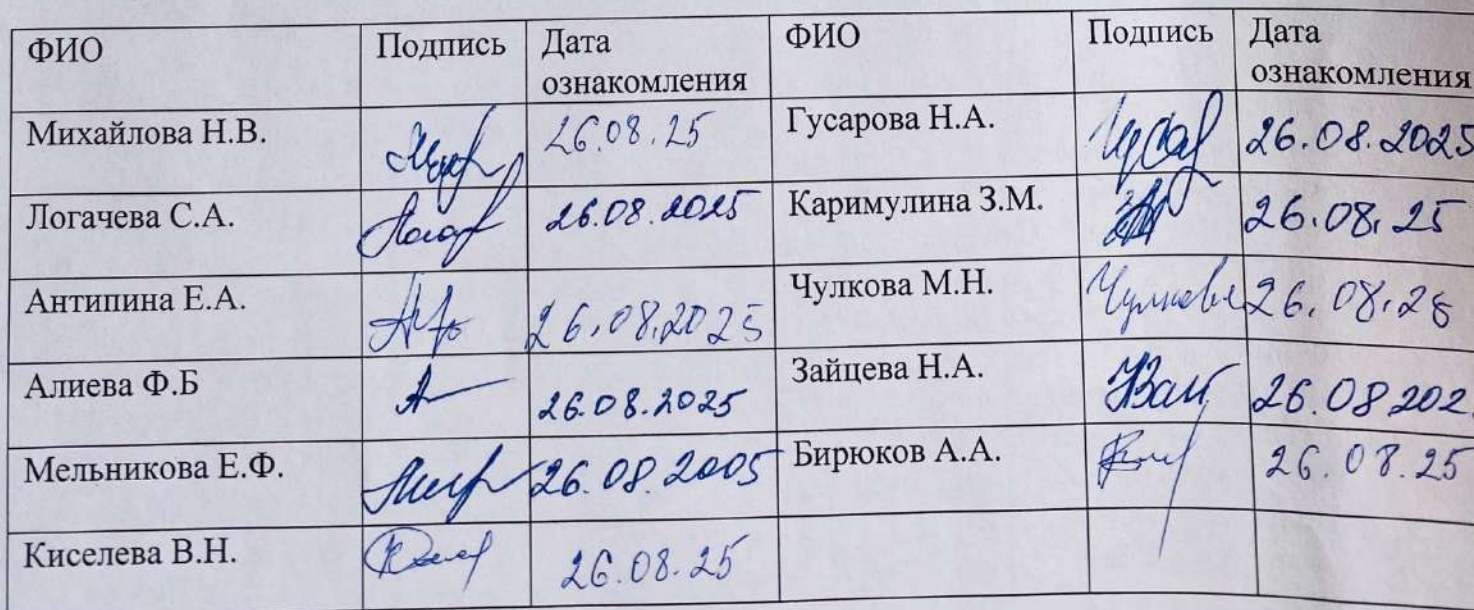 ФИО Подпись Дата ознакомления ФИО Подпись Дата ознакомления
Михайлова Н.В. 26.08.25 Гусарова Н.А. 26.08.2025
Логачева С.А. 26.08.2025 Каримулина З.М. 26.08.25
Антипина Е.А. 26.08.2025 Чулкова М.Н. 26.08.25
Алиева Ф.Б 26.08.2025 Зайцева Н.А. 26.08 202
Мельникова Е.Ф. 26.08.2005 Бирюков А.А. 26.08.25
Киселева В.Н. 26.08.25